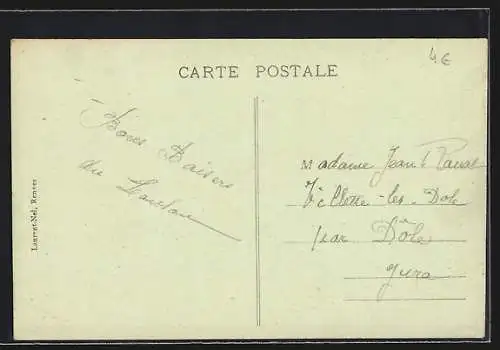 4€
CARTE POSTALE
Bons Baisers
du
Madame Jean
Villette-les-Dole
par Dôle
Jura
Laurent-Nel, Rennes